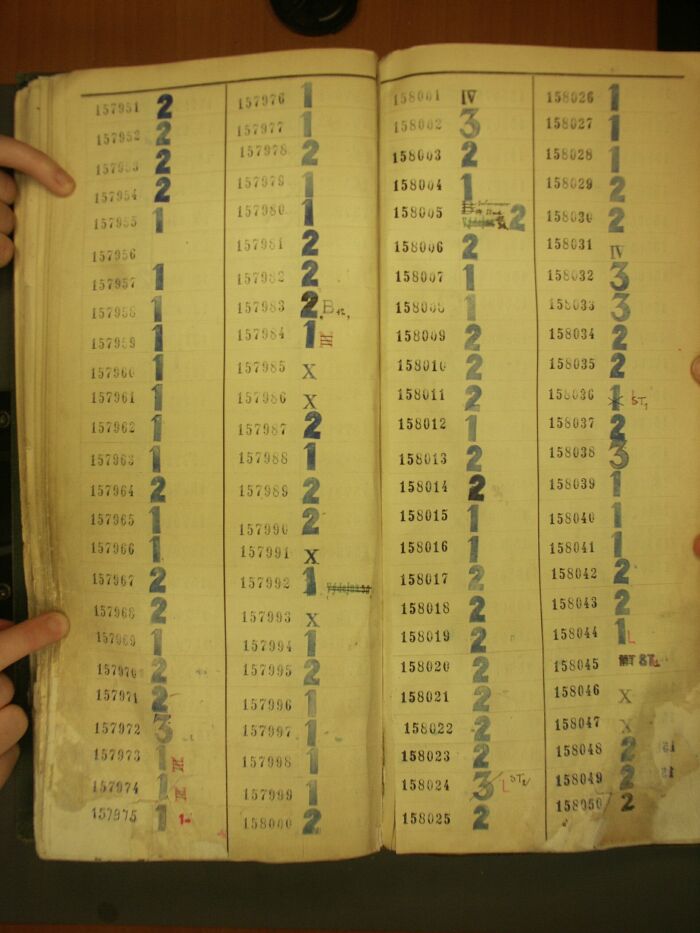 157951 2
157952 2
157953 2
157954 2
157955 1
157956
157957 1
157958 1
157959 1
157960 1
157961 1
157962 1
157963 1
157964 2
157965 1
157966 1
157967 2
157968 2
157969 1
157970 2
157971 2
157972 3
157973 1 III
157974 1
157975 1
157976 1
157977 1
157978 2
157979 1
157980 1
157981 2
157982 2
157983 2
157984 1 III
157985 X
157986 X
157987 2
157988 1
157989 2
157990 2
157991 X
157992 1
157993 X
157994 1
157995 2
157996 1
157997 1
157998 1
157999 1
158000 2
158001 IV
158002 3
158003 2
158004 1
158005 2
158006 2
158007 1
158008 1
158009 2
158010 2
158011 2
158012 1
158013 2
158014 2
158015 1
158016 1
158017 2
158018 2
158019 2
158020 2
158021 2
158022 2
158023 2
158024 3
158025 2
158026 1
158027 1
158028 1
158029 2
158030 2
158031 IV
158032 3
158033 3
158034 2
158035 2
158036 1 ST1
158037 2
158038 3
158039 1
158040 1
158041 1
158042 2
158043 2
158044 1 L
158045
158046 X
158047 X
158048 2
158049 2
158050 2